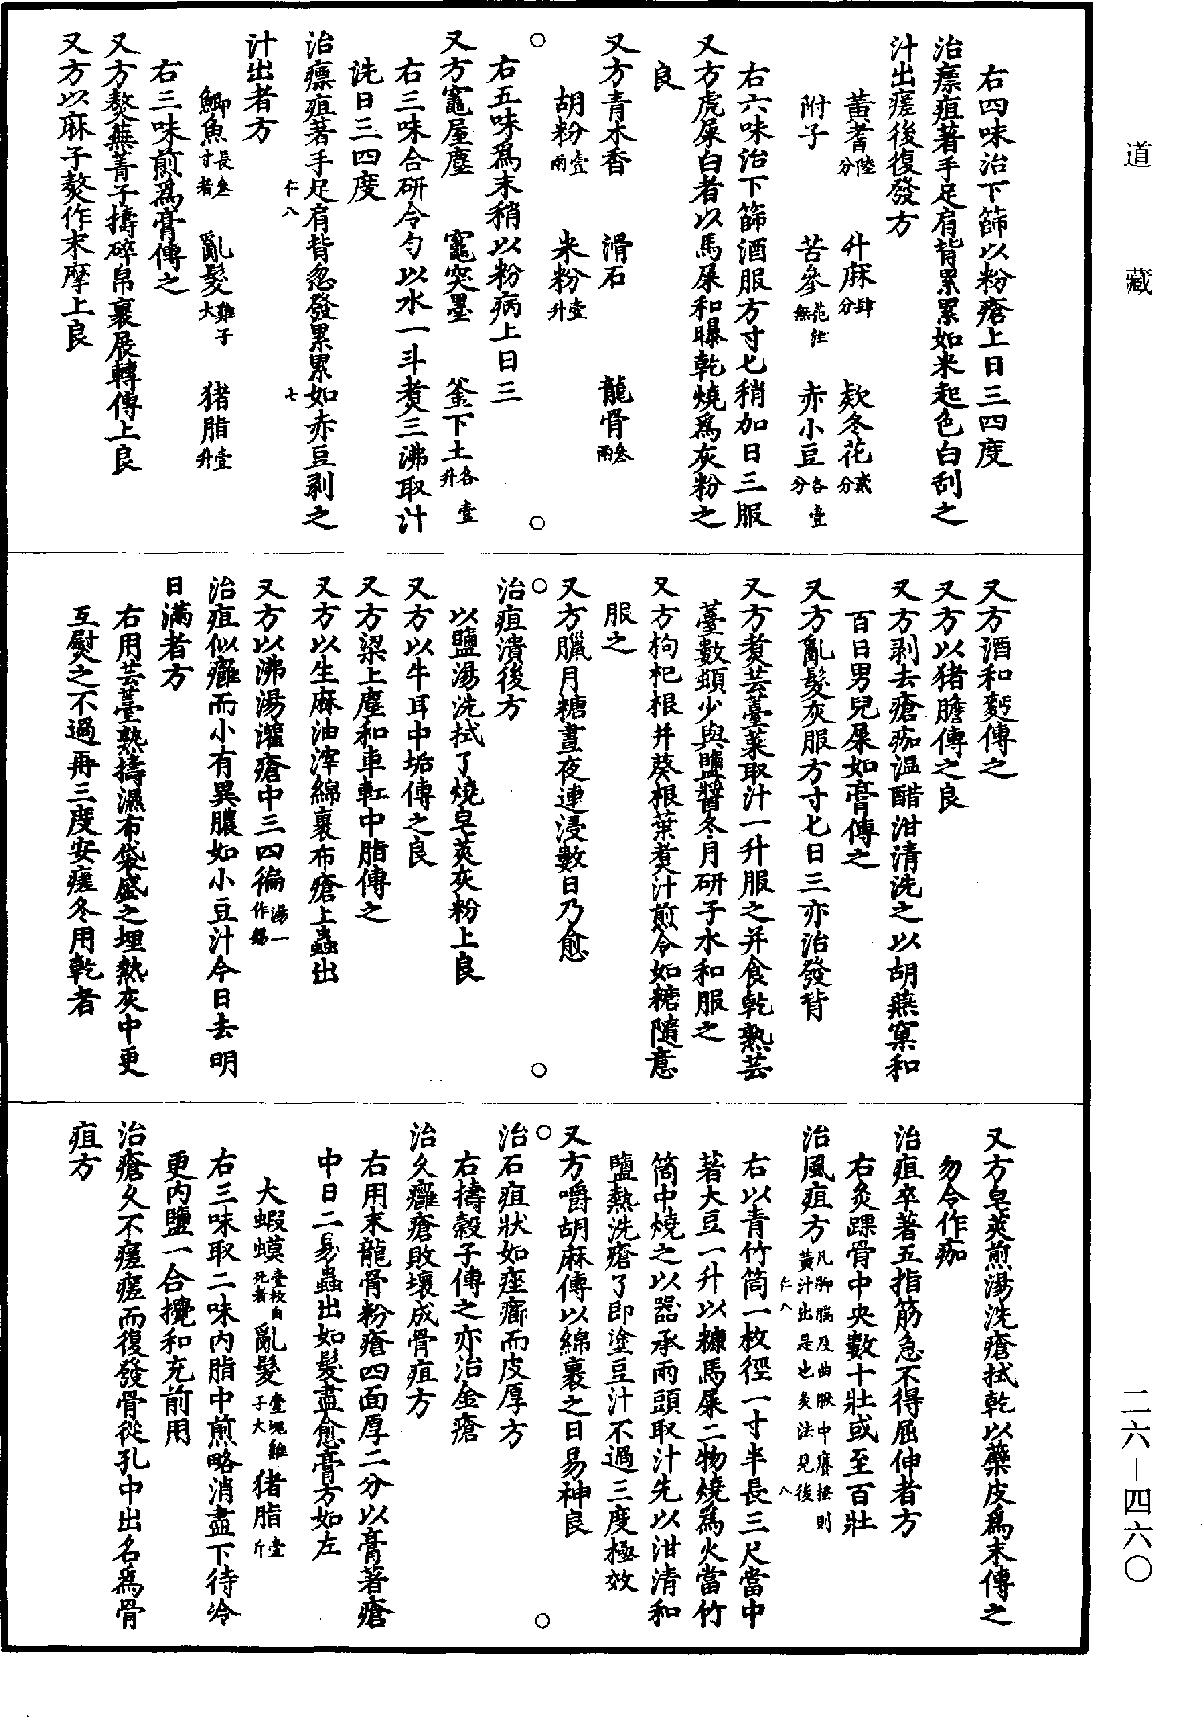 道藏
右四味治下篩以粉瘡上日三四度
治瘭疽著手足肩背累累如米起色白刮之
汁出瘥後復發方
黃耆陸分 升麻肆分 欵冬花貳分
附子 苦參花佐無 赤小豆各壹分
右六味治下篩酒服方寸匕稍加日三服
又方虎屎白者以馬屎和曝乾燒爲灰粉之
良
又方青木香 滑石 龍骨叁兩
胡粉壹兩 米粉壹升
右五味爲末稍以粉病上日三
又方竈屋塵 竈突墨 釜下土各壹升
右三味合研令勻以水一斗煮三沸取汁
洗日三四度
治瘭疽著手足肩背忽發累累如赤豆剥之
汁出者方
仁八 七
鯽魚長叁寸者 亂髮雞子大 猪脂壹升
右三味煎爲膏傅之
又方熬蕪菁子擣碎帛裹展轉傅上良
又方以麻子熬作末摩上良
又方酒和麪傅之
又方以猪膽傅之良
又方剥去瘡痂溫醋泔清洗之以胡燕窠和
百日男兒屎如膏傅之
又方亂髮灰服方寸匕日三亦治發背
又方煮芸薹菜取汁一升服之并食乾熟芸
薹數頓少與鹽醬冬月研子水和服之
又方枸杞根并葵根葉煮汁煎令如糖隨意
服之
又方臘月糖晝夜連浸數日乃愈
治疽潰後方
以鹽湯洗拭了燒皂莢灰粉上良
又方以牛耳中垢傅之良
又方梁上塵和車𨊻中脂傅之
又方以生麻油滓綿裹布瘡上蟲出
又方以沸湯灌瘡中三四徧湯一作錫
治疽似癰而小有異膿如小豆汁今日去明
日滿者方
右用芸薹熟擣濕布袋盛之埋熱灰中更
互熨之不過再三度安瘥冬用乾者
又方皂莢煎湯洗瘡拭乾以藥皮爲末傅之
勿令作痂
治疽卒著五指筋急不得屈伸者方
右灸踝骨中央數十壯或至百壯
治風疽方凡脚腨及曲䐐中癢搔則黃汁出是也灸法見後
仁八 八
右以青竹筒一枚徑一寸半長三尺當中
著大豆一升以糠馬屎二物燒爲火當竹
筒中燒之以器承兩頭取汁先以泔清和
鹽熱洗瘡了即塗豆汁不過三度極效
又方嚼胡麻傅以綿裹之日易神良
治石疽狀如痤癤而皮厚方
右擣榖子傅之亦治金瘡
治久癰瘡敗壞成骨疽方
右用末龍骨粉瘡四面厚二分以膏著瘡
中日二易蟲出如髮盡愈膏方如左
大蝦蟆壹枚自死者 亂髮壹塊雞子大 猪脂壹斤
右三味取二味內脂中煎略消盡下待冷
更內鹽一合攪和充前用
治瘡久不瘥瘥而復發骨從孔中出名爲骨
疽方
二六－四六〇